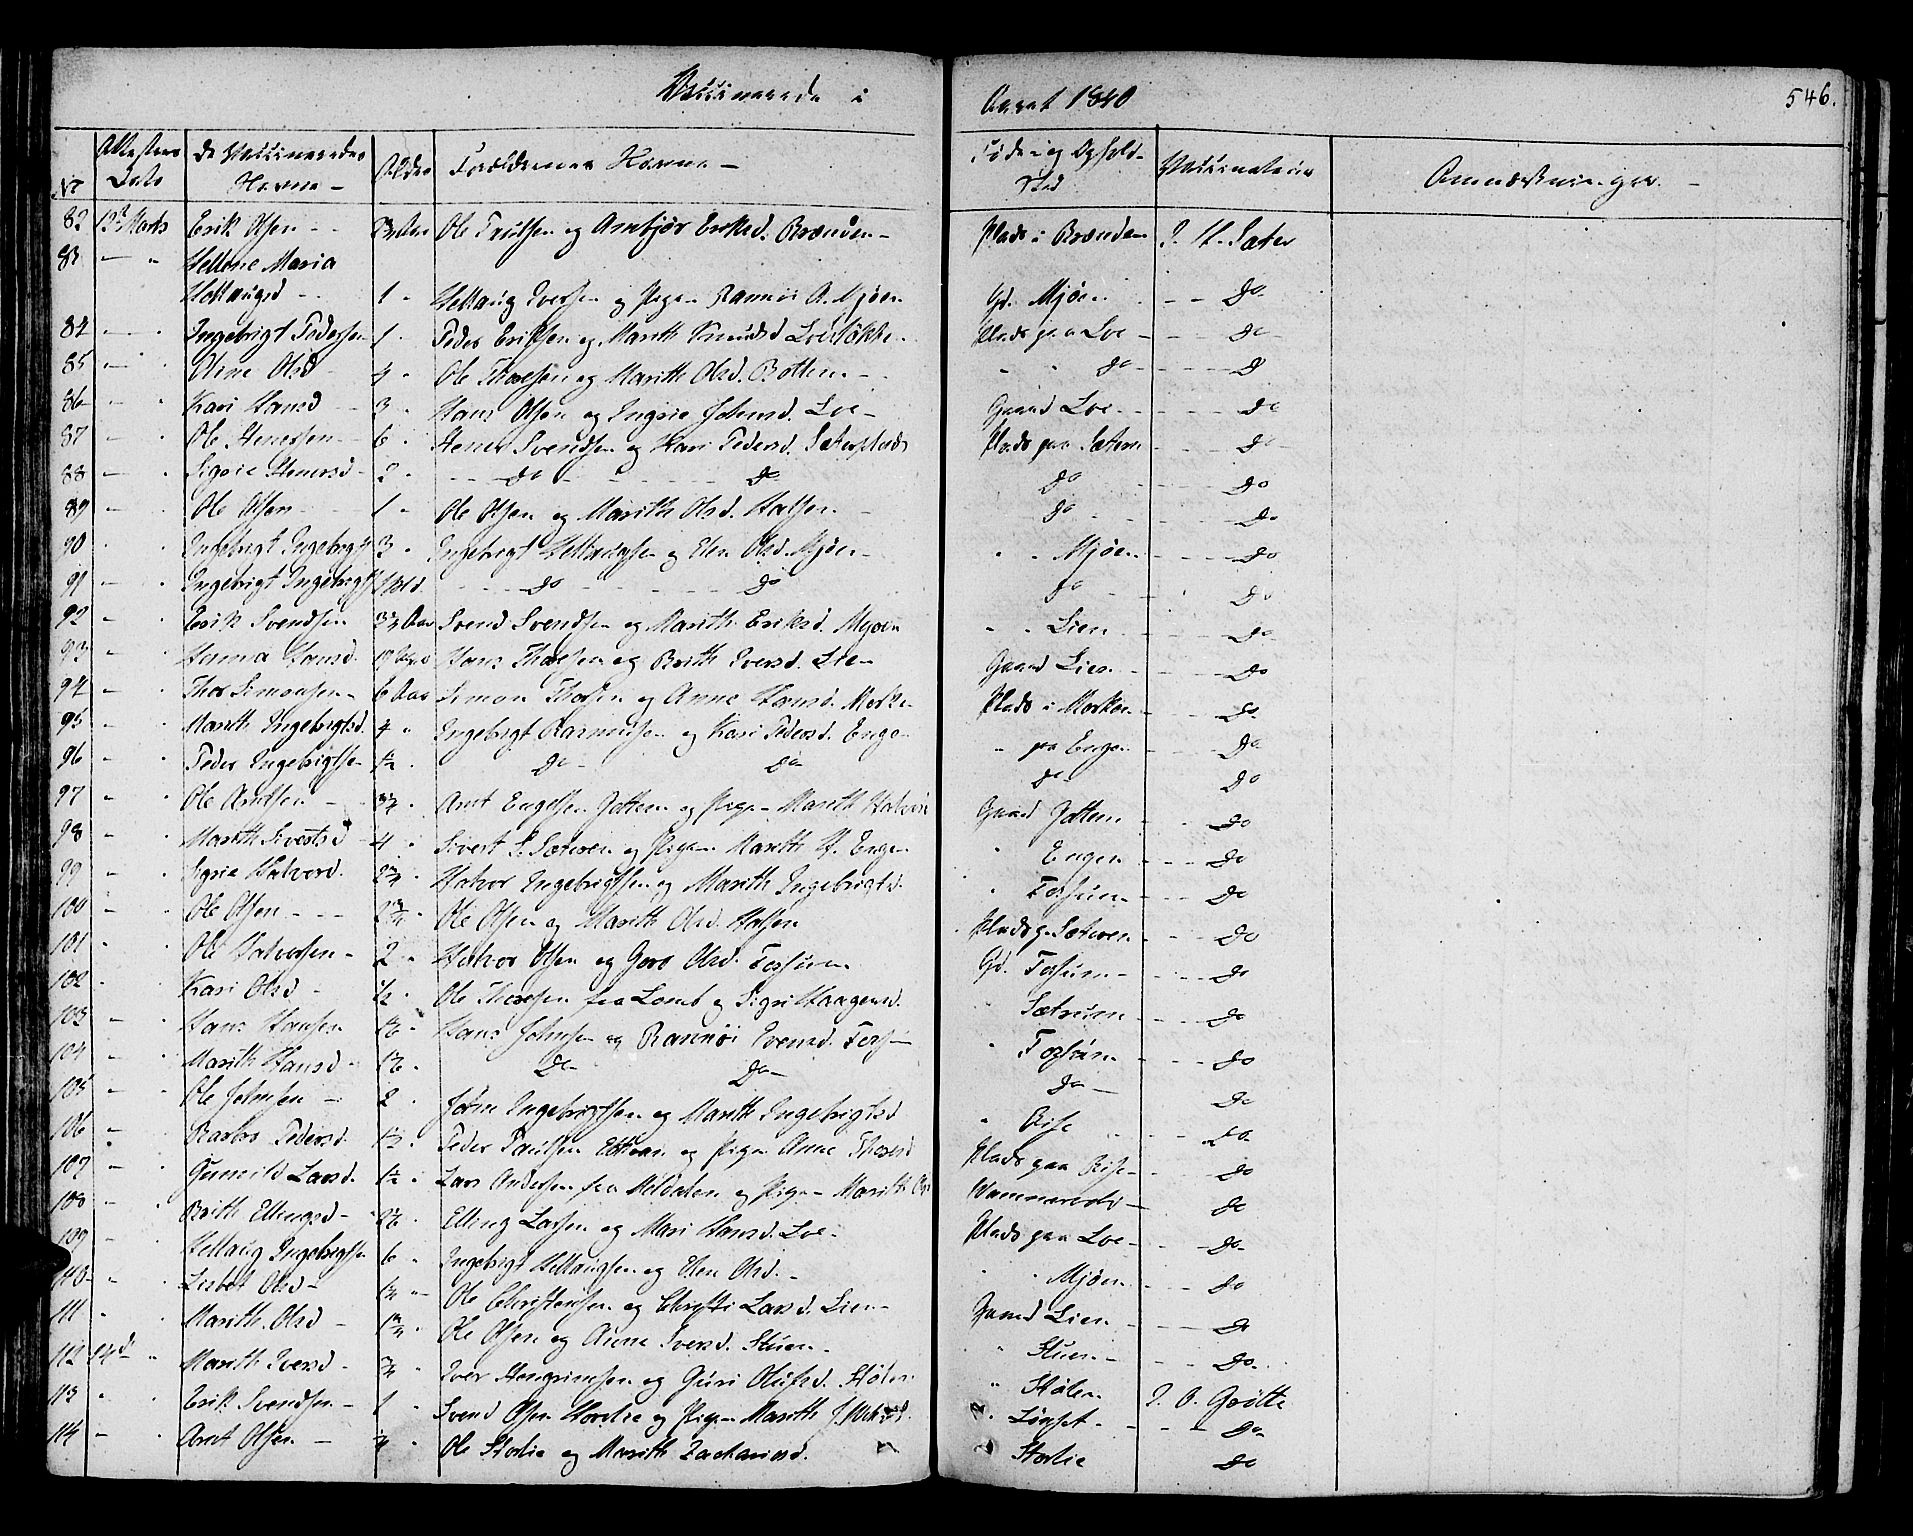 Vaccinerede i Aaret 1840 546.
No Attestens Dato De Vaccineredes Navne - Alder Forældrenes Navne - Føde- og Opholds Sted Vaccinateur Anmærkninger. -
82 12te Marts Erik Olsen - - Aar Ole og Arnbjør Eriksd. Brænden - Plads i Brænden J. H. Sæter
83 - " Hellone Maria
Hallaugsd - - 1 " Hellaug Iversen og Pigen Rannøi A. Mjøen Gd. Mjøen - - Do
84 - " Ingebrigt Pedersen 1 " Peder Eriksen og Marith Knudsd Loeløkken Plads paa Loe - - Do
85 - " Oline Olsd - 4 " Ole Thoresen og Marith Olsd. Botten - " " Do - - Do
86 - " Kari Hansd - 3 " Hans Olsen og Ingrie Johnsd. Loe - Gaard Loe - - Do
87 - " Ole Stenersen - 6 " Stener Svendsen og Kari Pedersd. Sæterplads Plads paa Sæteren - - Do
88 - " Sigrie Stenersd - 2 " - - Do - - - Do Do - Do
89 - " Ole Olsen - 1 " Ole Olsen og Marith Olsd. Halsen - Do - - Do
90 " " Ingebrigt Ingebrigts 3 " Ingebrigt Hellaugsen og Elen Olsd. Mjøen - " " Mjøen - - Do
91 - " Ingebrigt Ingebrigts - - Do - - Do Do - - Do
92 - " Erik Svendsen Aar Svend Svendsen og Marith Eriksd. Mjøen " " Lien - - Do
93 - " Hanna Hansd. Hans Thoresen og Brith Iversd. Lie - Gaard Lien - - Do
94 - " Thor Simonsen - 6 Aar Simon Thorsen og Anne Hansd. Morken Plads i Morken - - Do
95 - " Marith Ingebrigtsd. 4 " Ingebrigt Rasmusen og Kari Pedersd. Engen " paa Engen - - Do
96 - " Peder Ingebrigtsen 1/2 " Do - Do Do - Do
97 - " Ole Arntsen - 3/4 " Arnt Engelsen Jottem og Pigen Marith Halvors Gaard Jottem - Do
98 - " Marith Sivertsd 4 " Sivert S. Sæteren og Pigen Marith H. Engen " Engen - - Do
99 - " Sigrie Halvord. " Halvor Ingebrigtsen og Marith Ingebrigtsd. " Fossum - - Do
100 - " Ole Olsen - - - " Ole Olsen og Marith Olsd. Halsen Plads p. Sæteren - - Do
101 " " Ole Halvorsen - 2 " Halvor Olsen og Goro Olsd. Fossum Gd. Fossum - - Do
102 - " Kari Olsd - 1/2 " Ole Thoresen fra Lomb og Sigri Haagensd. " Sætrum - - Do
103 - " Hans Hansen " Hans Johnsen og Rannøi Svensd. Foss - " Fossum - - Do
104 - " Marith Hansd - " Do - Do - Do - Do
105 - " Ole Johnsen - 2 " John Ingebrigtsen og Marith Ingebrigtsd " Rise - - Do
106 - " Barbro Pedersd. 1 1/2 " Peder Paulsen og Pigen Anne Thoresd Plads paa Rise - - Do
107 - " Gunnild Larsd. 1 1/2 " Lars Andersen fra Meldalen og Pigen Marith - Do
108 - " Brith Ellingsd - " Elling Larsen og Mari Hansd. Loe - Plads paa Loe - - Do
109 - " Hellaug Ingebrigtsen 6 " Ingebrigt Hellaugsen og Elen Olsd. - " " Mjøen - - Do
110 - " Lisbet Olsd - " Ole Christensen og Chresti Larsd. Lien - Gaard Lien - - Do
111 " " Marith Olsd - " Ole Olsen og Anne Iversd. Stuen - " " Stuen - - - Do
112 14de " Marith Iversd - 3/4 " Iver Stengrimsen og Guri Olufsd. Stølen " Stølen J. O. Grøtte
113 " " Erik Svendsen - 1 " Svend Olsen Hordlie og Pigen Marith J. " Lønset - - - Do
114 - " Arnt Olsen - " Ole Storlie og Marith Zachariasd. " Storlie Do